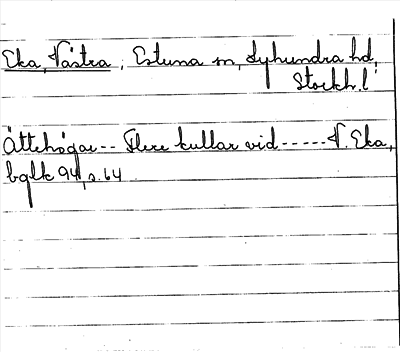 Eka, Västra, Estuna sn, Lyhundra hd,
Stockh. l
Ättehögar -- Flere kullar vid ----- V. Eka,
bglk 94, s. 64